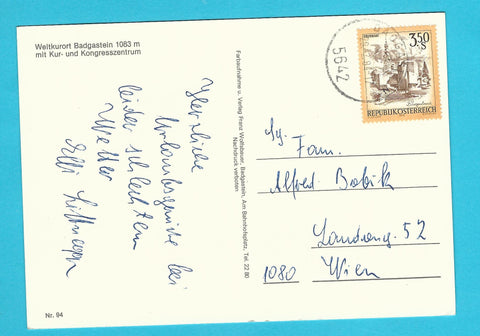 Weltkurort Badgastein 1083 m
mit Kur- und Kongresszentrum
Herzliche
Urlaubsgrüsse bei
leider schlechtem
Wetter
Elli
Nr. 94
Farbaufnahme u. Verlag Franz Wolfsbauer, Badgastein, Am Bahnhofsplatz, Tel. 22 80
Nachdruck verboten
5642
3.50
S
REPUBLIK ÖSTERREICH
Fam.
Alfred Bobik
Landong. 52
1080 Wien